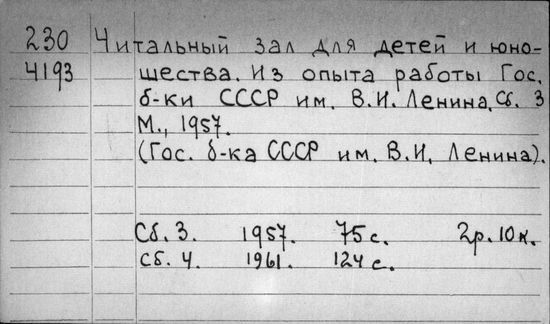 230 Читальный зал для детей и юно-
4193 шества. Из опыта работы Гос.
б-ки СССР им. В.И. Ленина. Сб. 3
М., 1957.
(Гос. б-ка СССР им. В.И. Ленина).
Сб. 3. 1957. 75 с. 2р. 10к.
сб. 4. 1961. 124 с.